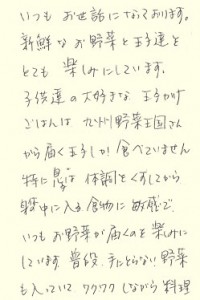 いつも お世話になっております。
新鮮なお野菜と玉子達を
とても 楽しみにしています。
子供達の大好きな 玉子かけ
ごはんは 九州野菜王国さん
から届く玉子しか食べていません
特に息子は 体調をくずしてから
体中に入る食物に敏感で、
いつも お野菜が届くのを楽しみに
しています 普段、手にとらない野菜
も入っていて ワクワクしながら料理